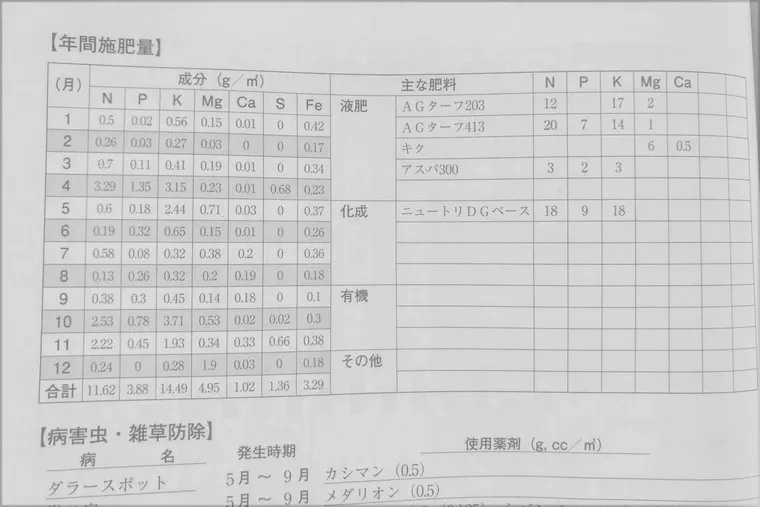 【年間施肥量】
(月) 成分（g／㎡） 主な肥料 N P K Mg Ca
N P K Mg Ca S Fe
1 0.5 0.02 0.56 0.15 0.01 0 0.42
2 0.26 0.03 0.27 0.03 0 0 0.17
3 0.7 0.11 0.41 0.19 0.01 0 0.34
4 3.29 1.35 3.15 0.23 0.01 0.68 0.23
5 0.6 0.18 2.44 0.71 0.03 0 0.37
6 0.19 0.32 0.65 0.15 0.01 0 0.26
7 0.58 0.08 0.32 0.38 0.2 0 0.36
8 0.13 0.26 0.32 0.2 0.19 0 0.18
9 0.38 0.3 0.45 0.14 0.18 0 0.1
10 2.53 0.78 3.71 0.53 0.02 0.02 0.3
11 2.22 0.45 1.93 0.34 0.33 0.66 0.38
12 0.24 0 0.28 1.9 0.03 0 0.18
合計 11.62 3.88 14.49 4.95 1.02 1.36 3.29
液肥 ＡＧターフ203 12 17 2
ＡＧターフ413 20 7 14 1
キク 6 0.5
アスパ300 3 2 3
化成 ニュートリＤＧベース 18 9 18
有機
その他
【病害虫・雑草防除】
病 名 発生時期 使用薬剤（g, cc／㎡）
ダラースポット 5月～9月 カシマン（0.5）
5月～9月 メダリオン（0.5）